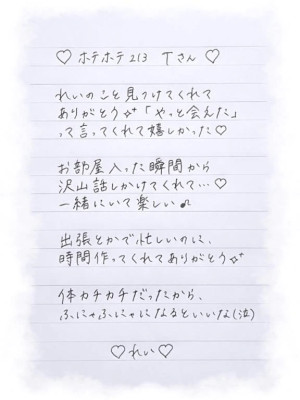 ♡ ホテホテ213 Tさん ♡
れいのこと見つけてくれて
ありがとう✨「やっと会えた」
って言ってくれて嬉しかった♡
お部屋入った瞬間から
沢山話しかけてくれて…♡
一緒にいて楽しい♪
出張とかで忙しいのに、
時間作ってくれてありがとう✨
体カチカチだったから、
ふにゃふにゃになるといいな(泣)
♡れい♡